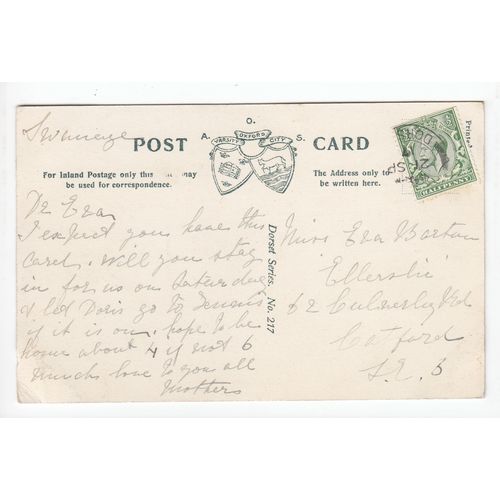 Swanage
POST
CARD
O.
A.
S.
VARSITY
OXFORD
CITY
For Inland Postage only this may
be used for correspondence.
The Address only to
be written here.
Dorset Series. No. 217
Printed
HALFPENNY
Dr Eva
I expect you have this
card. Will you stay
in for us on Saturday
& let Doris go to Tennis
if it is on. hope to be
home about 4 if not 6
Much love to you all
Mothers
Miss Eva Barton
Ellerslie
62 Culverley Rd
Catford
S.E. 6